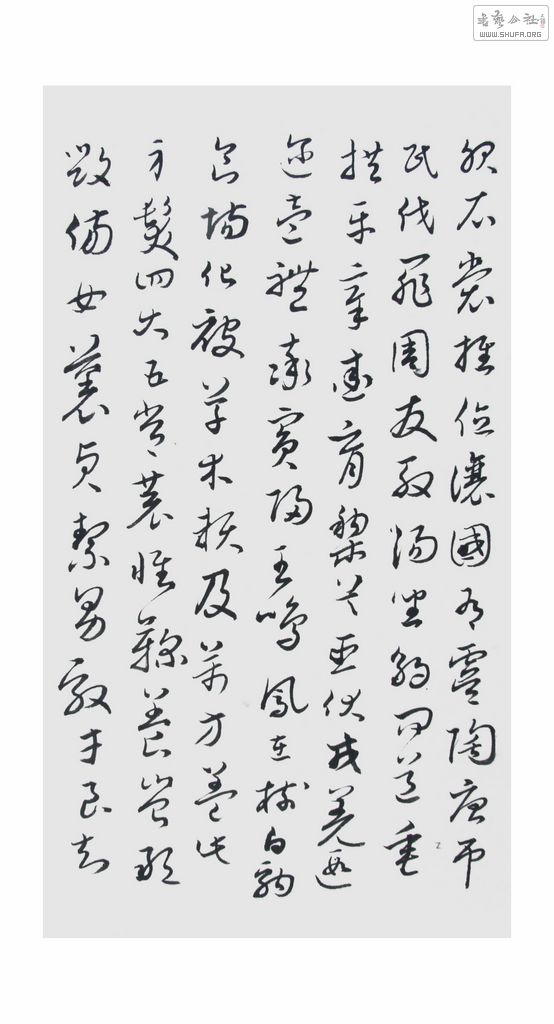 书艺公社
WWW.SHUFA.ORG
服衣裳推位讓國有虞陶唐弔
民伐罪周發殷湯坐朝問道垂
拱平章愛育黎首臣伏戎羌遐
邇壹體率賓歸王鳴鳳在樹白駒
食場化被草木賴及萬方蓋此
身髮四大五常恭惟鞠養豈敢
毀傷女慕貞絜男效才良知